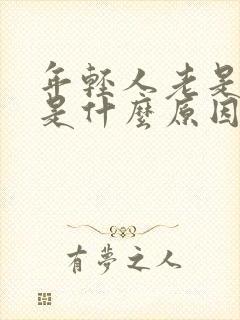 年輕人老是
是什麼原因
有夢之人